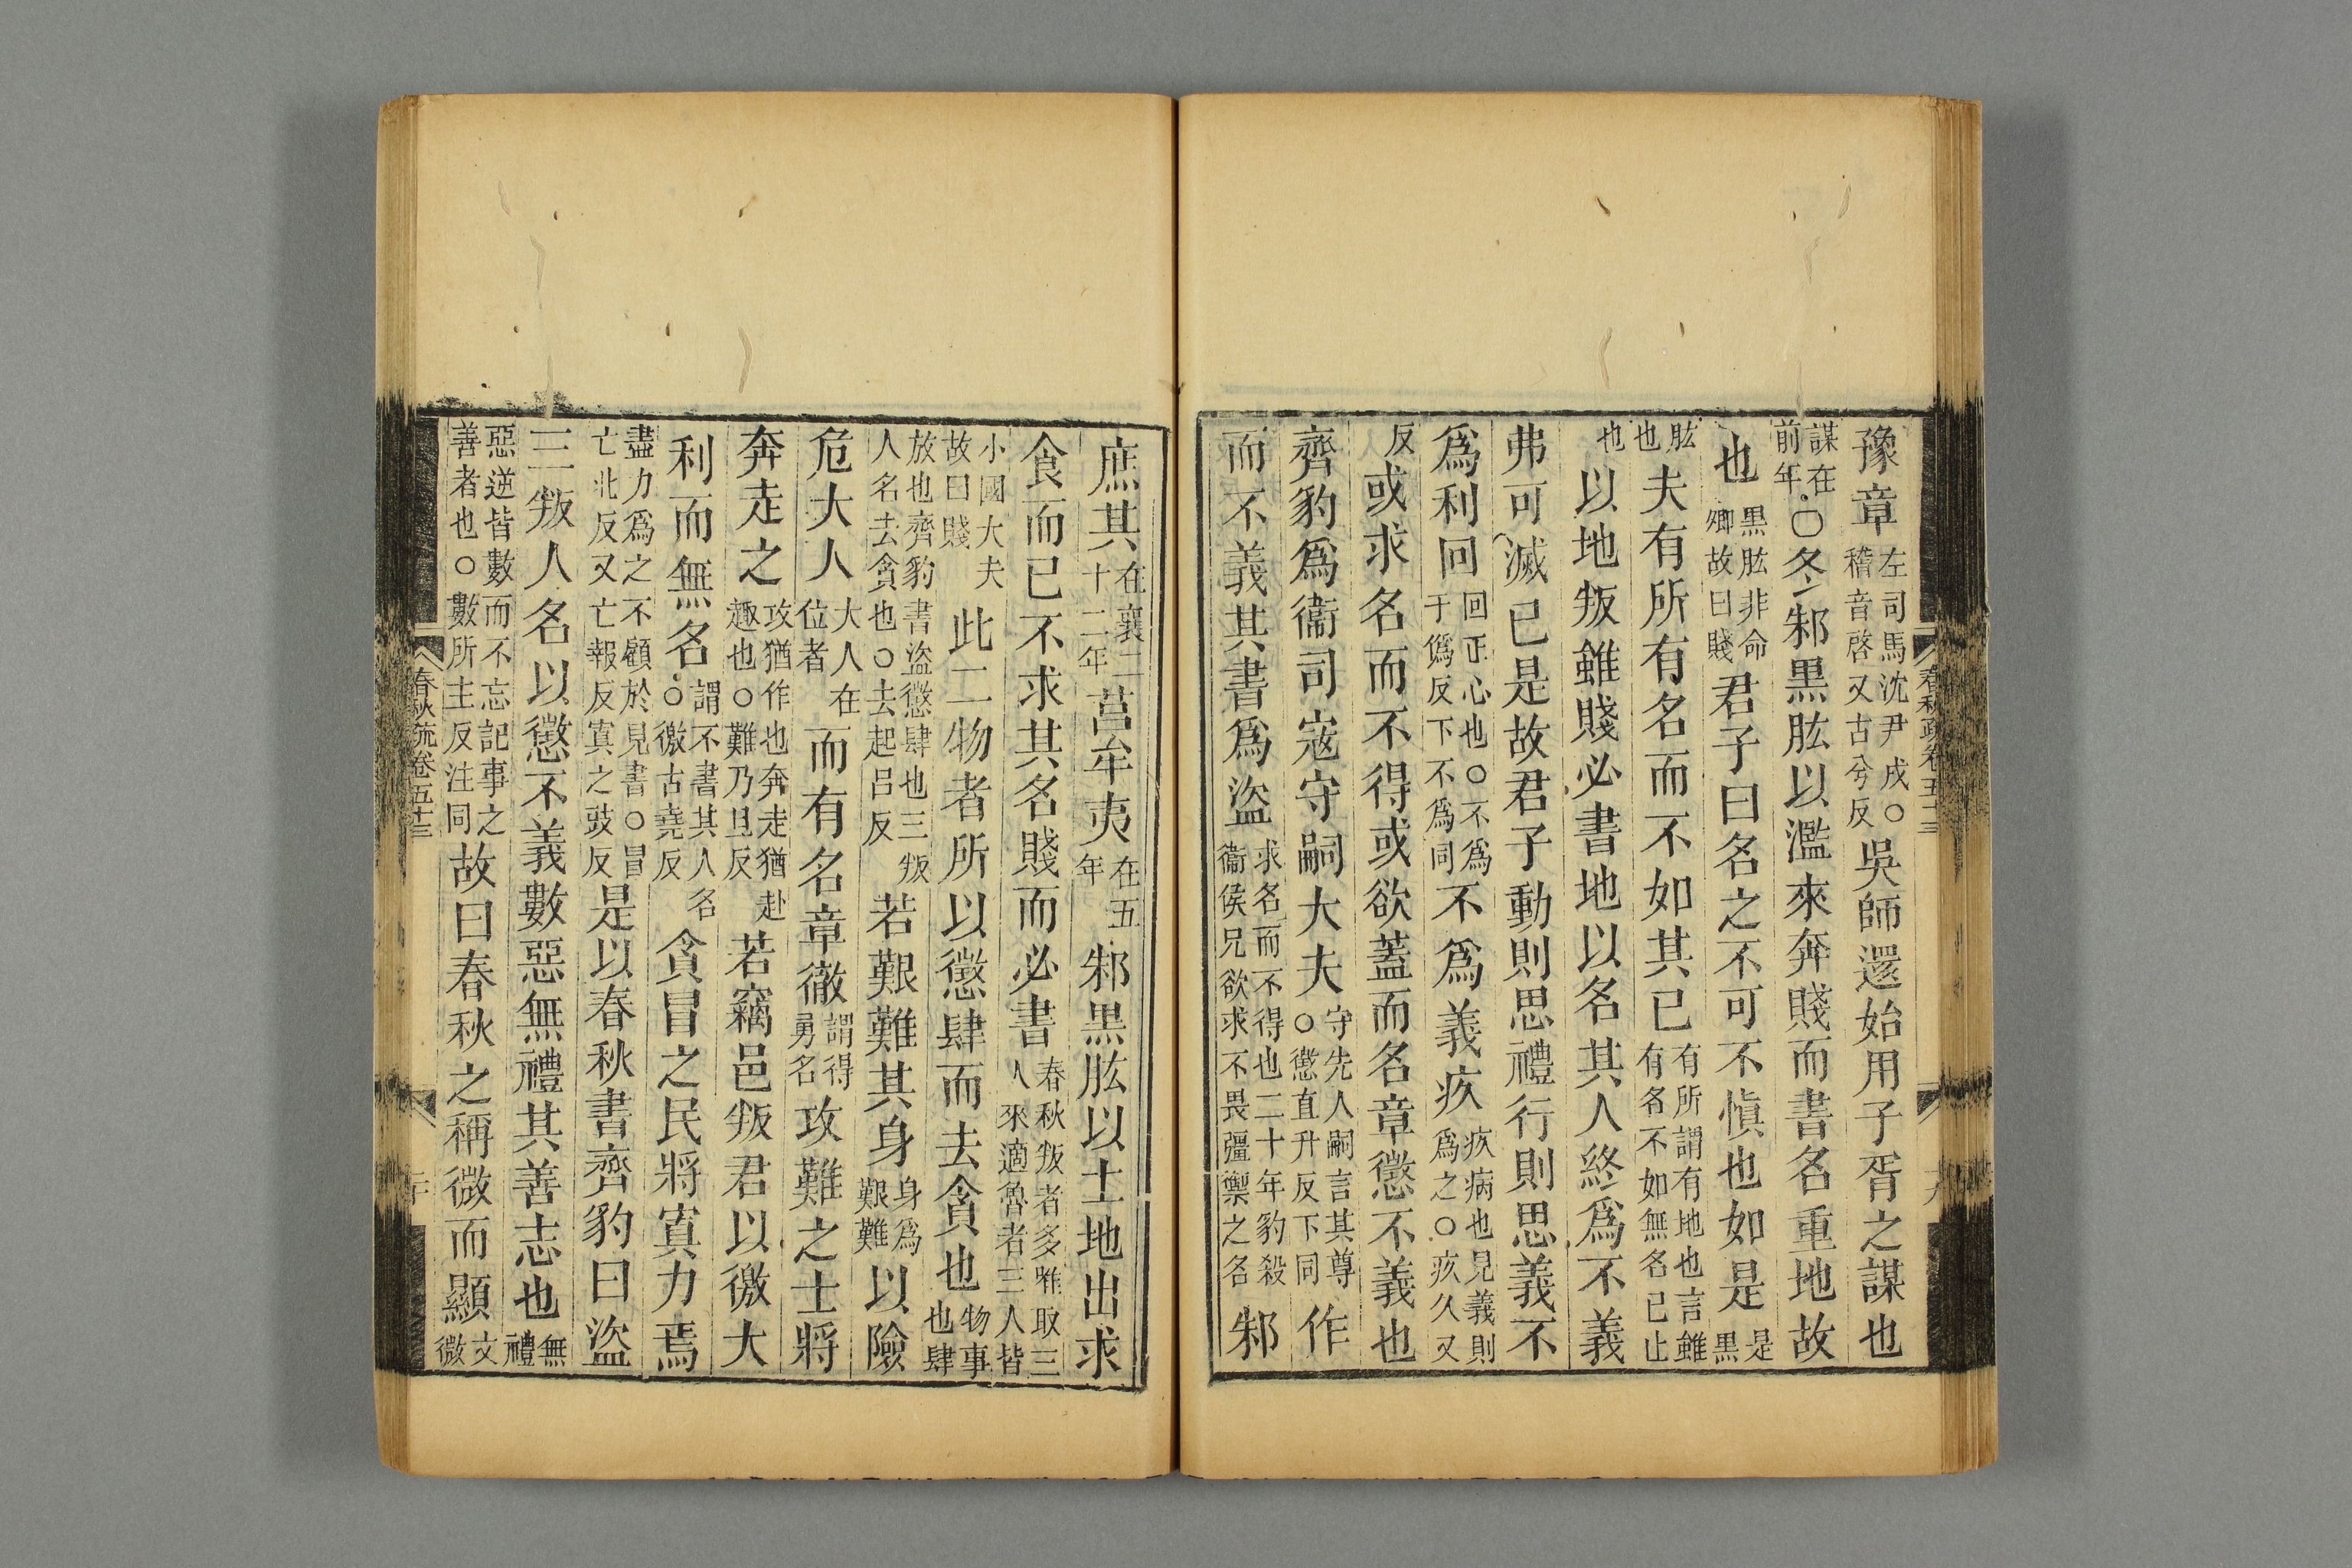 豫章左司馬沈尹戌○稽音啓又古兮反吳師還始用子胥之謀也
謀在前年○冬邾黑肱以濫來奔賤而書名重地故
也黑肱非命卿故曰賤君子曰名之不可不愼也如是是黑
肱也夫有所有名而不如其已有所謂有地也言雖有名不如無名已止
也以地叛雖賤必書地以名其人終爲不義
弗可滅已是故君子動則思禮行則思義不
爲利回回正心也○不爲于僞反下不爲同不爲義疚疚病也見義則爲之○疚久又
反或求名而不得或欲蓋而名章懲不義也
齊豹爲衞司寇守嗣大夫守先人嗣言其尊○懲直升反下同作
而不義其書爲盜求名而不得也二十年豹殺衞侯兄欲求不畏彊禦之名邾
春秋疏卷五十三
庶其在襄二十二年莒牟夷在五年邾黑肱以土地出求
食而已不求其名賤而必書春秋叛者多唯取三人來適魯者三人皆
小國大夫故曰賤此二物者所以懲肆而去貪也物事也肆
放也齊豹書盜懲肆也三叛人名去貪也○去起呂反若艱難其身身爲艱難以險
危大人大人在位者而有名章徹謂得勇名攻難之士將
奔走之攻猶作也奔走猶赴趣也○難乃旦反若竊邑叛君以徼大
利而無名謂不書其人名○徼古堯反貪冒之民將寘力焉
盡力爲之不顧於見書○冒亡北反又亡報反寘之豉反是以春秋書齊豹曰盜
三叛人名以懲不義數惡無禮其善志也無禮
惡逆皆數而不忘記事之善者也○數所主反注同故曰春秋之稱微而顯文微
春秋疏卷五十三